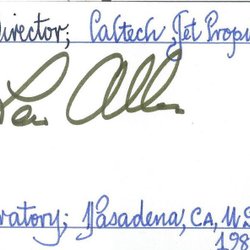 director; Caltech Jet Propu
Lew Allen
ratory; Pasadena, CA, U.S
198